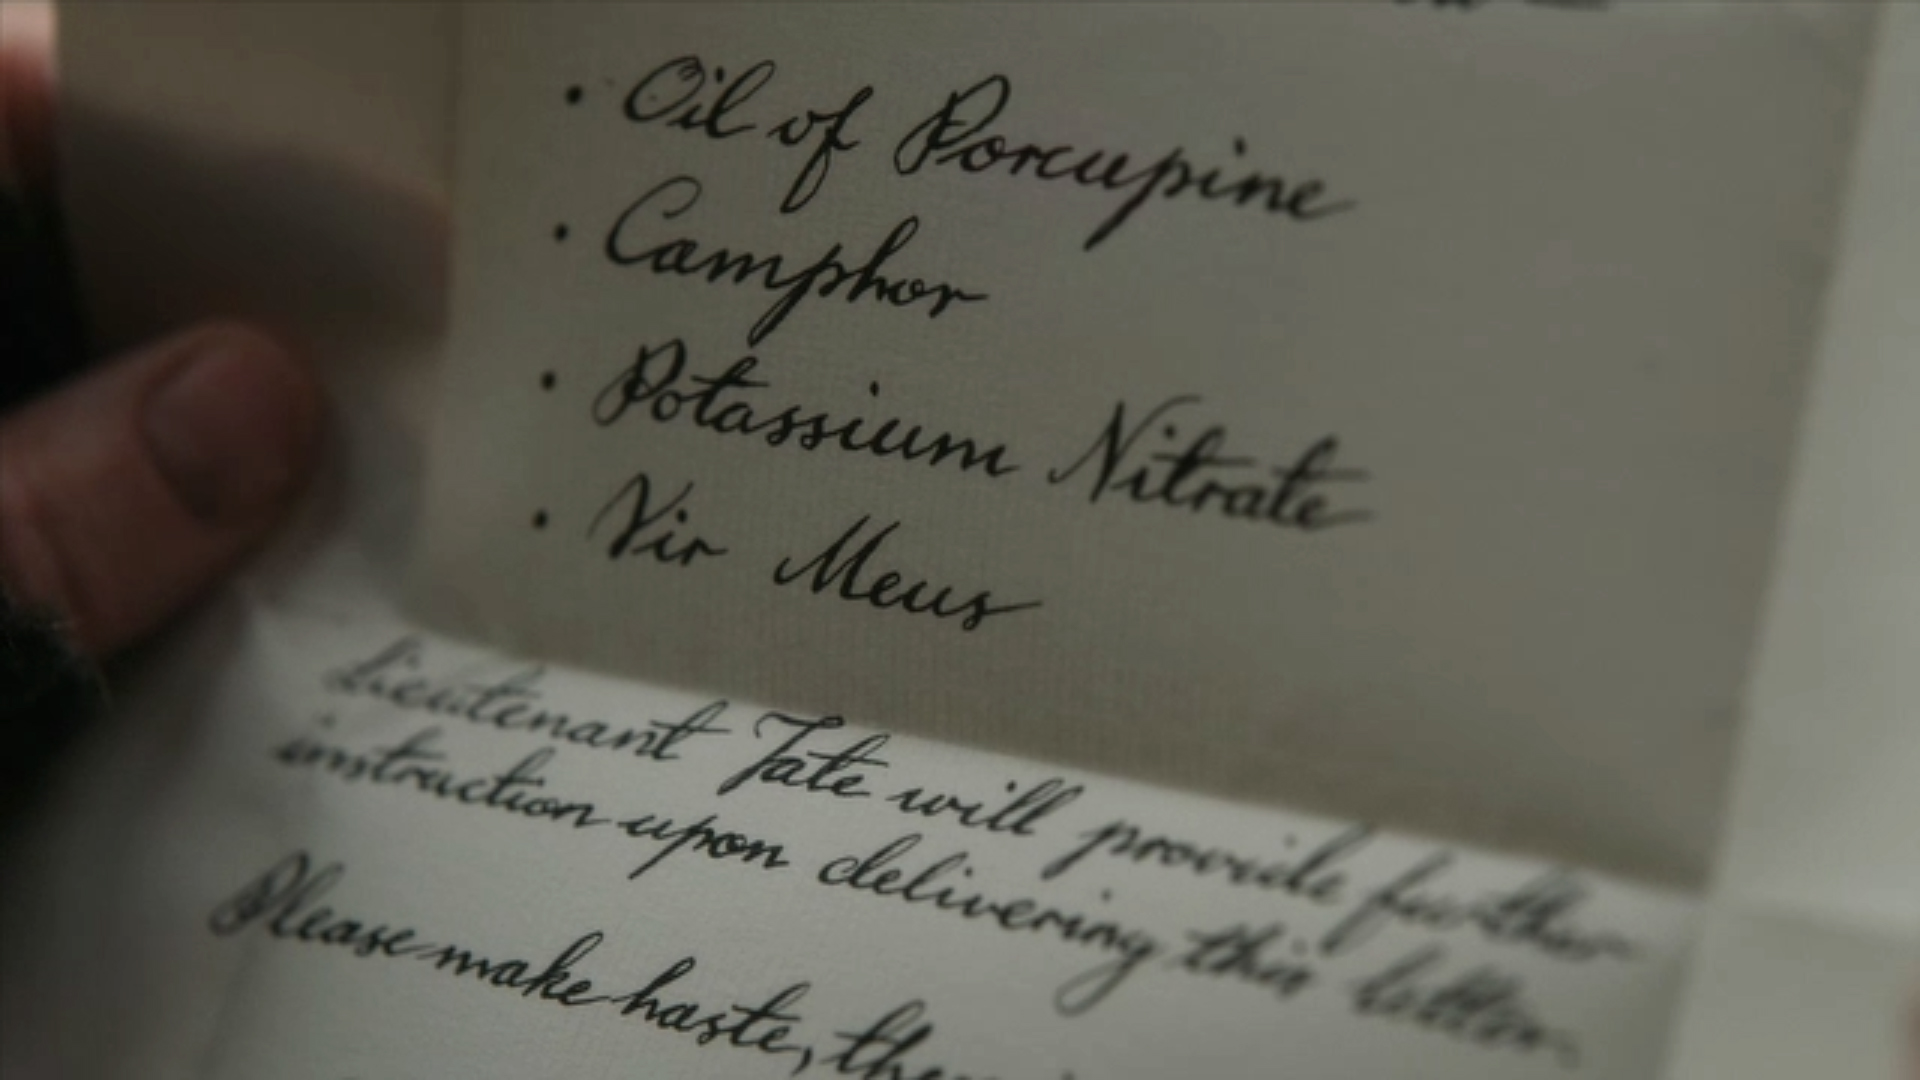 • Oil of Porcupine
• Camphor
• Potassium Nitrate
• Vir Meus
Lieutenant Tate will provide further
instruction upon delivering this letter.
Please make haste,